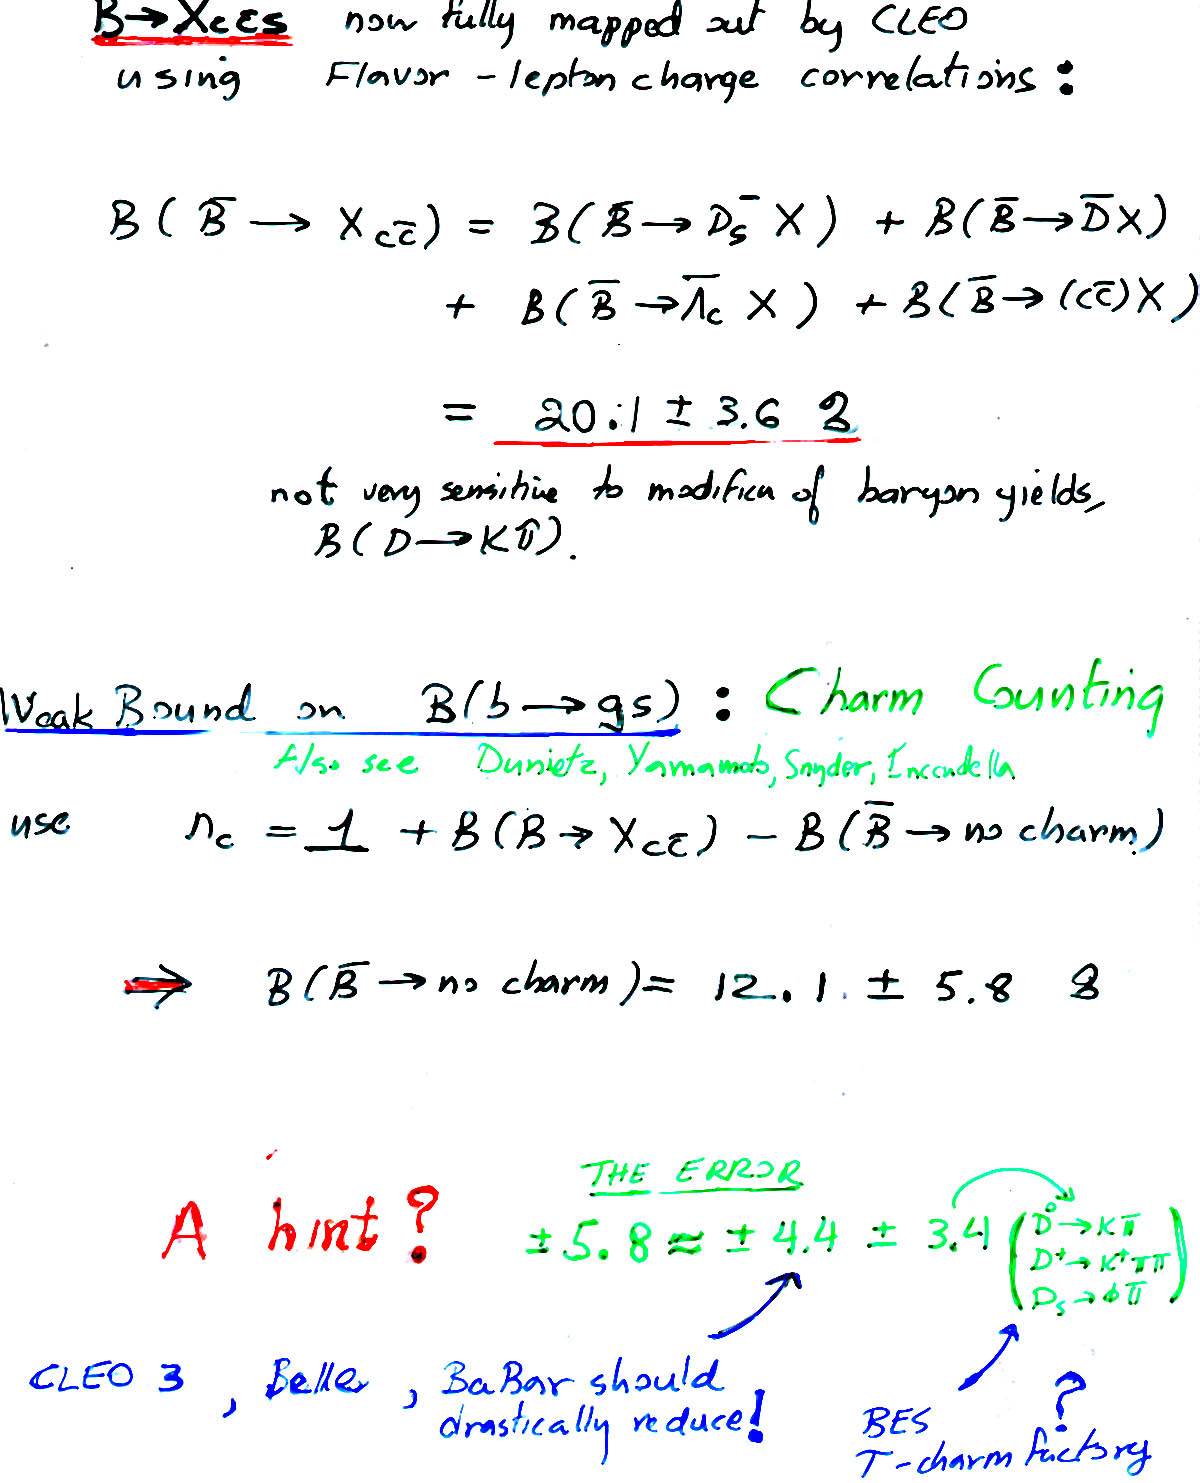 B→Xcc̄s now fully mapped out by CLEO
using Flavor-lepton charge correlations:
B(B̄ → X_{cc̄}) = B(B̄→D_s^- X) + B(B̄→D̄X)
+ B(B̄→Λ̄_c X) + B(B̄→(cc̄)X)
= 20.1 ± 3.6 %
not very sensitive to modificn of baryon yields,
B(D→Kπ).
Weak Bound on B(b→gs): Charm Counting
Also see Dunietz, Yamamoto, Snyder, Incandella
use n_c = 1 + B(B→X_{cc̄}) - B(B̄→no charm)
⇒ B(B̄→no charm) = 12.1 ± 5.8 %
A hint?
THE ERROR
±5.8 ≈ ±4.4 ± 3.4 (D°→Kπ
D⁺→K⁺ππ
D_s→φπ)
CLEO 3, Belle, BaBar should
drastically reduce!
BES
τ-charm factory?